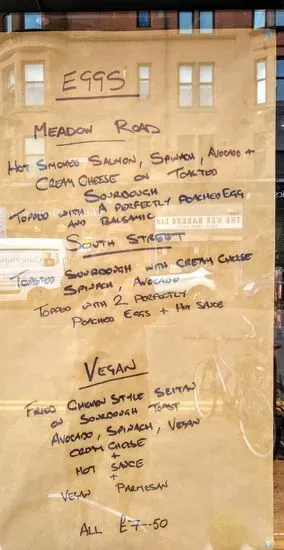 EGGS
MEADOW ROAD
HOT SMOKED SALMON, SPINACH, AVOCADO +
CREAM CHEESE ON TOASTED
SOURDOUGH
TOPPED WITH A PERFECTLY POACHED EGG
AND BALSAMIC
THE WEE BAKERS Ltd
SOUTH STREET
TOASTED SOURDOUGH WITH CREAM CHEESE
SPINACH, AVOCADO
TOPPED WITH 2 PERFECTLY
POACHED EGGS + HOT SAUCE
VEGAN
FRIED CHICKEN STYLE SEITAN
ON SOURDOUGH TOAST
AVOCADO, SPINACH, VEGAN
CREAM CHEESE
+
HOT SAUCE
+
VEGAN PARMESAN
ALL £7.50